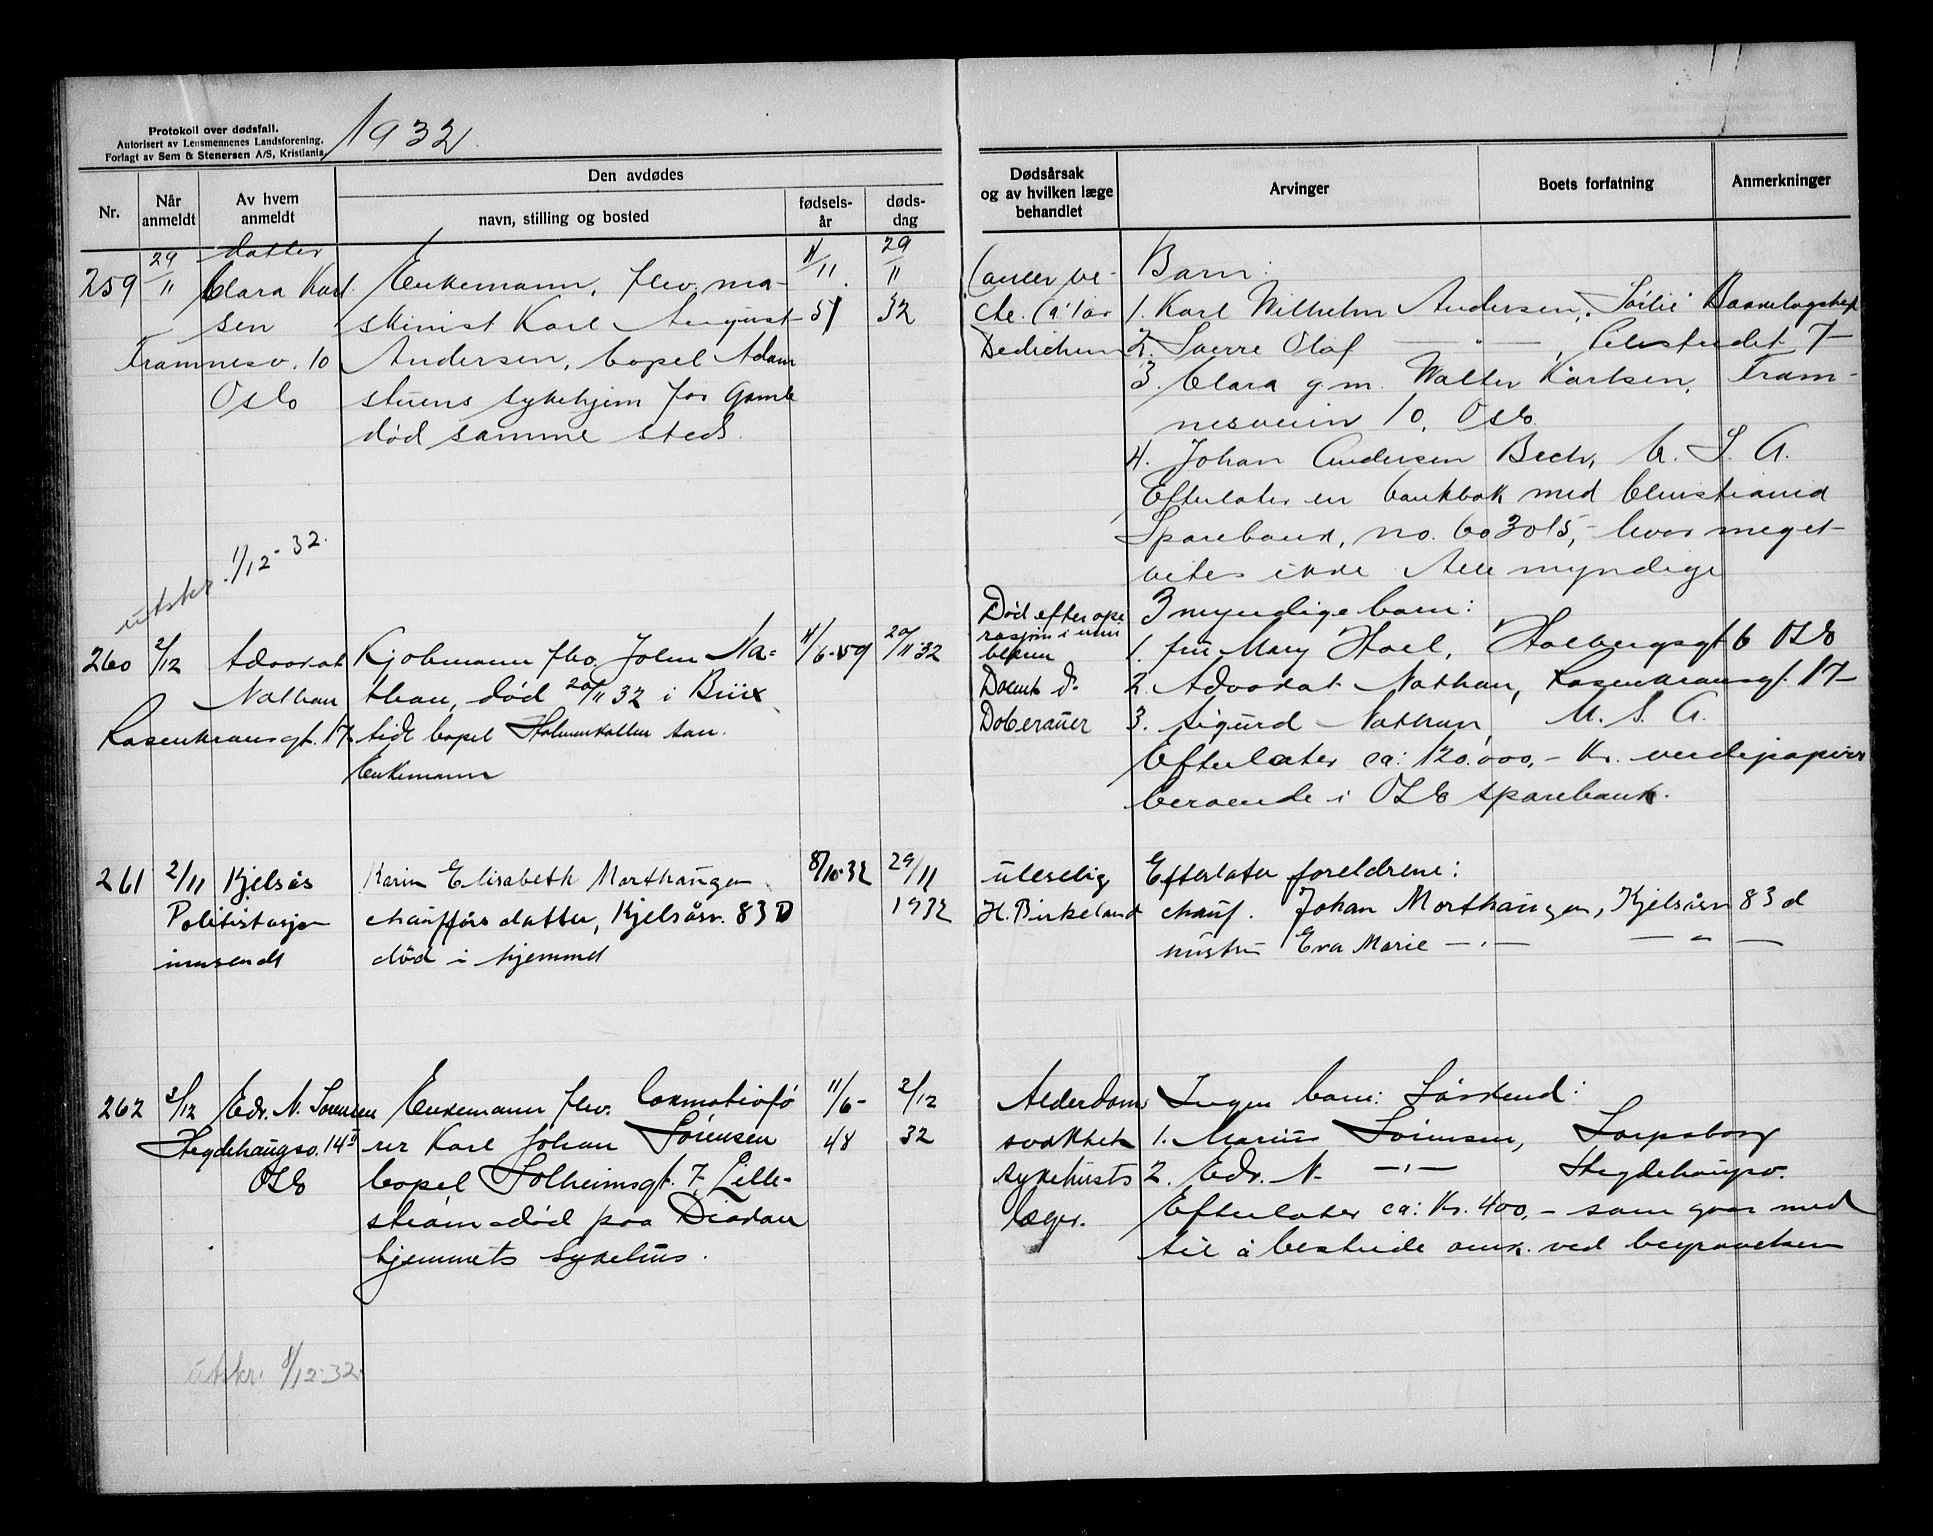 Protokoll over dødsfall.
Autorisert av Lensmennenes Landsforening.
Forlagt av Sem & Stenersen A/S, Kristiania.
1932.
Nr.
Når anmeldt
Av hvem anmeldt
Den avdødes
navn, stilling og bosted
fødselsår
dødsdag
Dødsårsak og av hvilken læge behandlet
Arvinger
Boets forfatning
Anmerkninger
259
29/11
datter
Clara Karl
sen
Framnesv. 10
Oslo
Enkemann, fhv. ma-
skinist Karl August
Andersen, bopel Adam
stuens sykehjem for Gamle
død samme sted.
11/11 51
29/11 32
Cancer ve-
Dedichen
Barn:
1. Karl Wilhelm Andersen,
2. Sverre Olaf — " —
3. Clara g.m. Walter Karlsen, Fram-
nesveien 10, Oslo
4. Johan Andersen Bech, U. S. A.
Efterlater en bankbok med Christiania
Sparebank, no. 603015, - hvor meget
vites ikke Alle myndige
utskr. 1/12-32.
260
2/12
Advokat
Nathan
Rosenkransgt. 17
Kjøbmann fhv. John Na-
than, død 20/11 32 i Brix
bopel Holmenkollen san.
Enkemann
11/6-59
20/11 32
Død efter ope
rasjon i
Docent d.
Doberauer
3 myndige barn:
1. fru Mary Hoel, Holbergsgt 6 Oslo
2. Advokat Nathan, Rosenkransgt. 17
3. Sigurd Nathan, U. S. A.
Efterlater ca: 120.000,- Kr. verdipapirer
beroende i Oslo sparebank.
261
2/11
Kjelsås
Politistasjon
innsendt
Karin Elisabeth Morthaugen
chaufførs datter, Kjelsåsv. 83 D
død i hjemmet
8/10-32
29/11
1932
uleselig
H. Birkeland
Efterlater foreldrene:
chauf. Johan Morthaugen, Kjelsåsvn 83 d
hustru Eva Marie — " — — " —
262
3/12
Edv. N. Sørensen
Hegdehaugsv. 14 II
Oslo
Enkemann fhv. Lokomotivfø
rer Karl Johan Sørensen
bopel Solheimsgt. 7, Lille-
strøm død paa Diakon
hjemmets sykehus.
11/6-
48
2/12
32
Alderdoms
svakhet
sykehusets
læger.
Ingen barn: Søskend:
1. Marius Sørensen, Sarpsborg
2. Edv. N. — " — Hegdehaugsv.
Efterlater ca: Kr. 400,- som gaar med
til å bestride omk. ved begravelsen
utskr. 8/12-32.